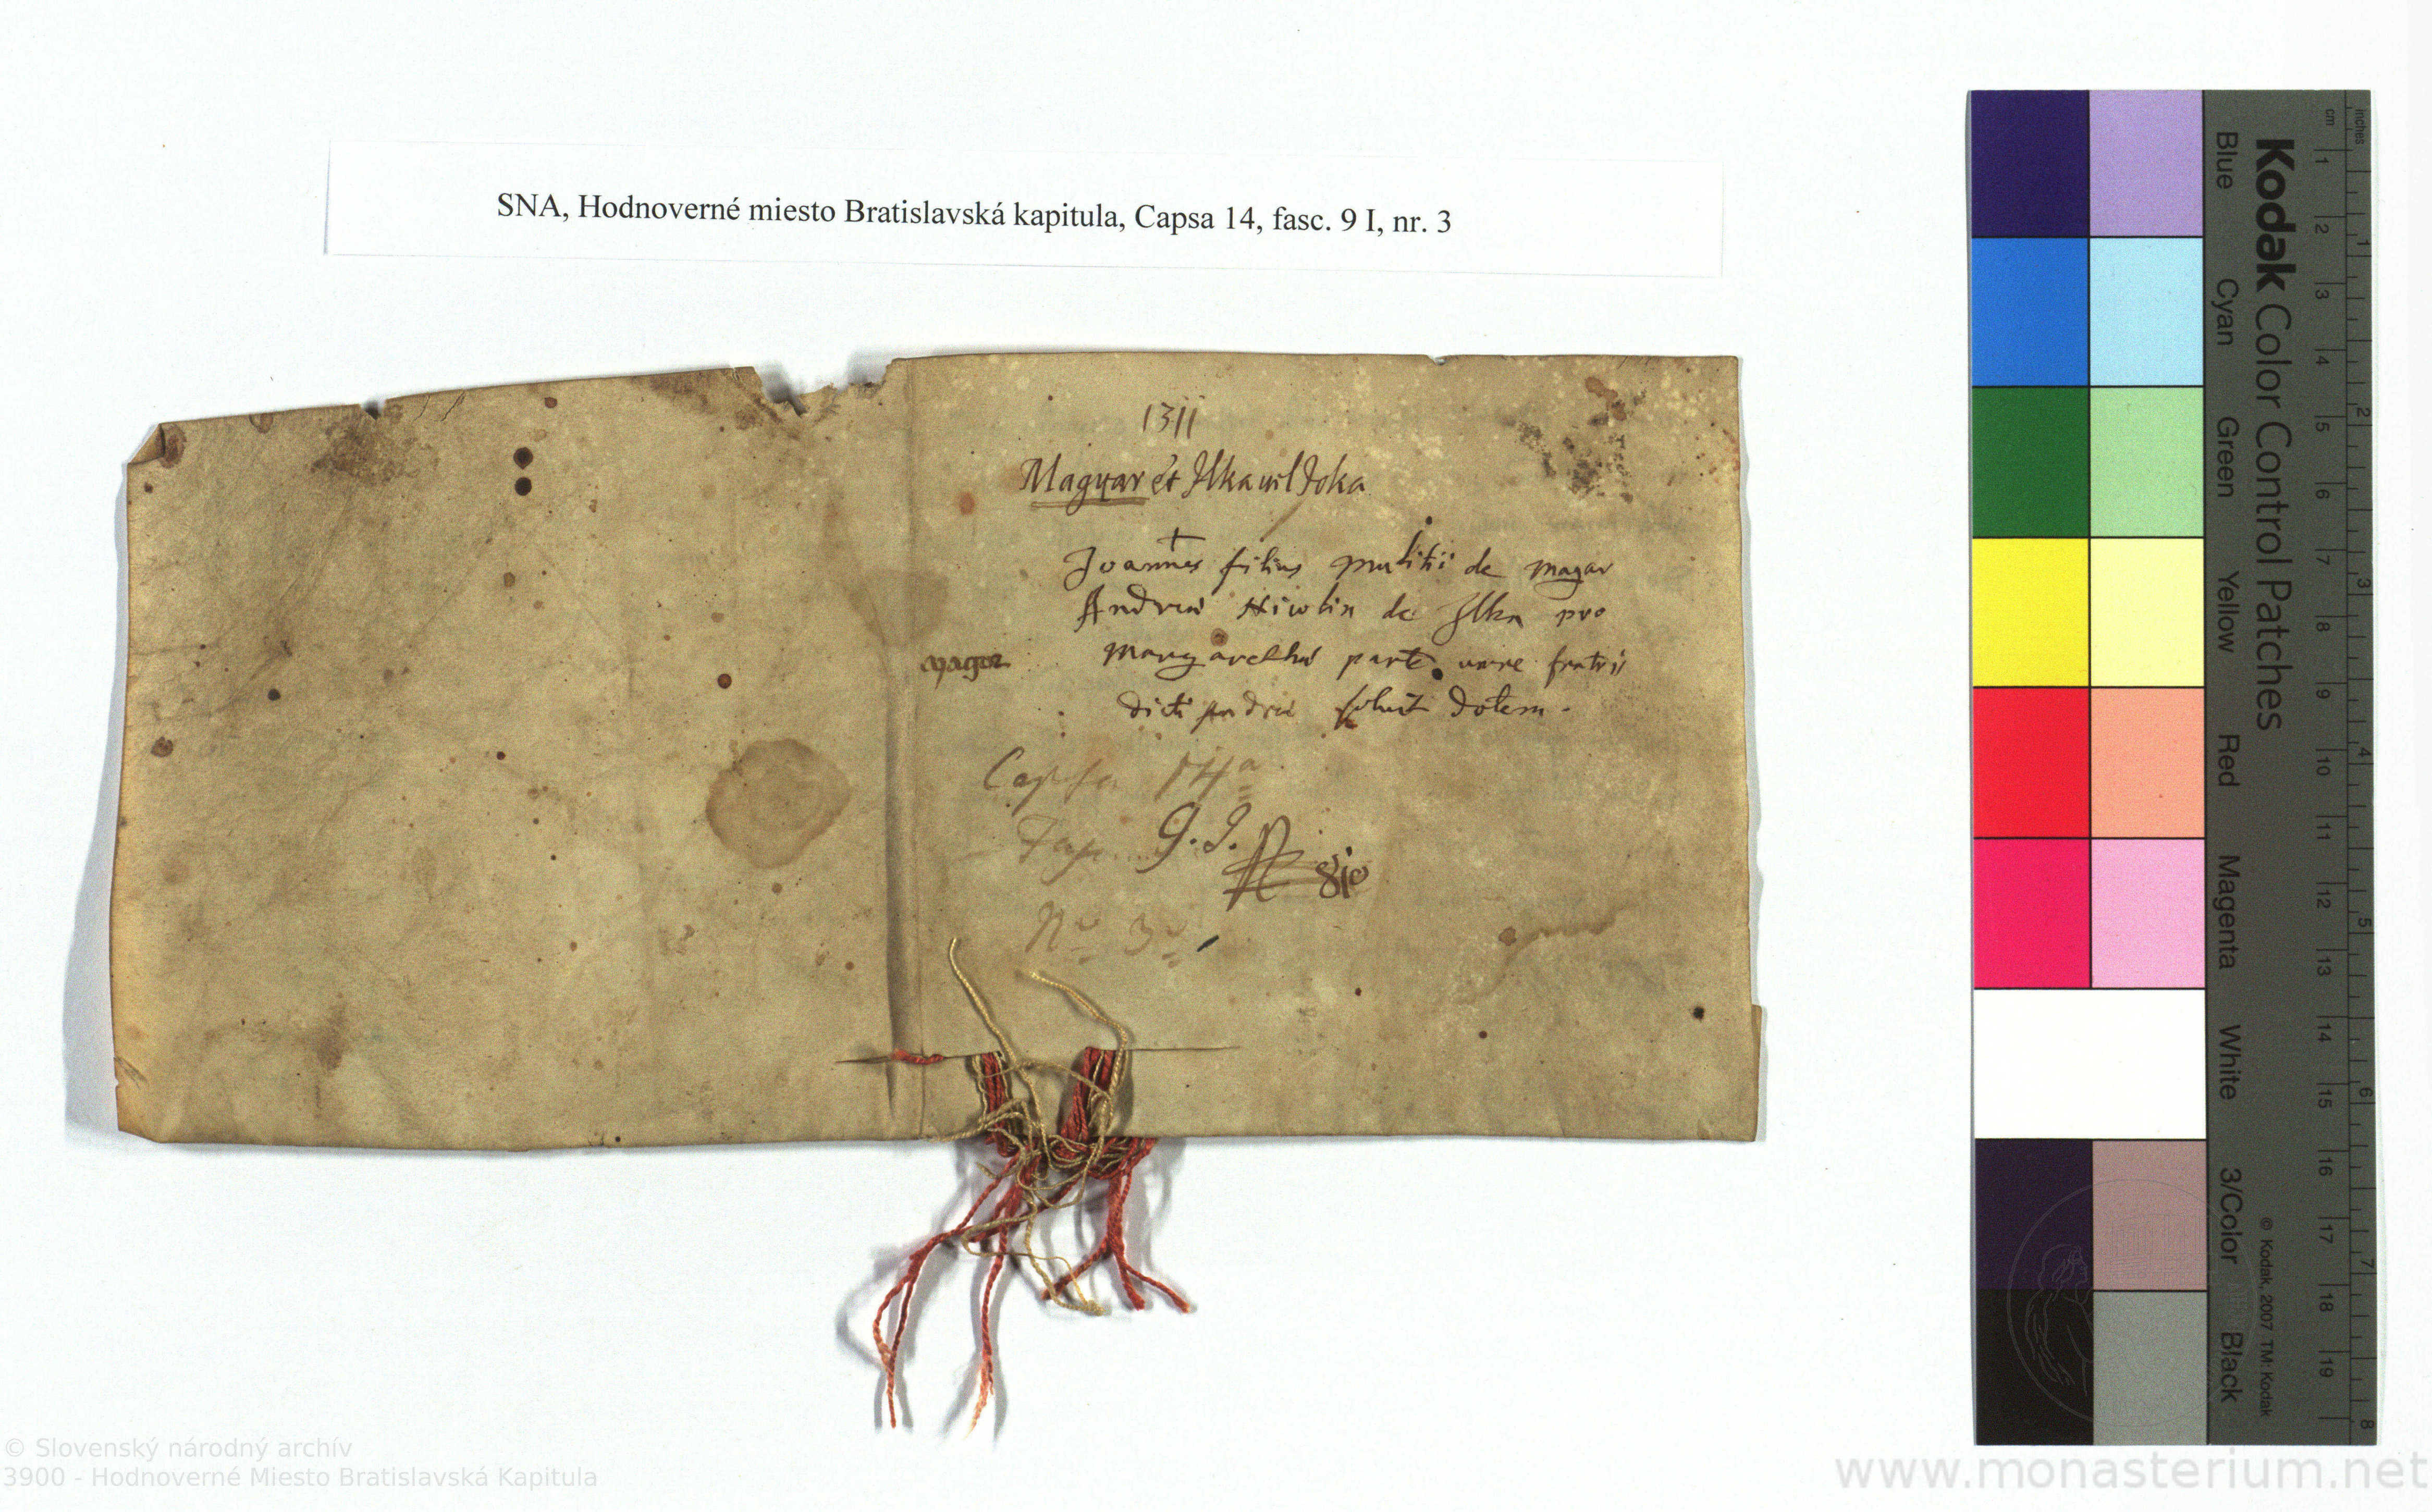 SNA, Hodnoverné miesto Bratislavská kapitula, Capsa 14, fasc. 9 I, nr. 3
1311
Magyar et Ilka vel Joka
Joannes filius de magar
Andreæ de Ilka pro
magar
parte fratris
dicti Andreæ soluit dotem.
Capsa 14a
Fasc. 9. I.
No 3.
Kodak Color Control Patches
Blue Cyan Green Yellow Red Magenta White 3/Color Black
© Kodak, 2007 TM: Kodak
cm 1 2 3 4 5 6 7 8 9 10 11 12 13 14 15 16 17 18 19
inches 1 2 3 4 5 6 7 8
© Slovenský národný archív
3900 - Hodnoverné Miesto Bratislavská Kapitula
www.monasterium.net